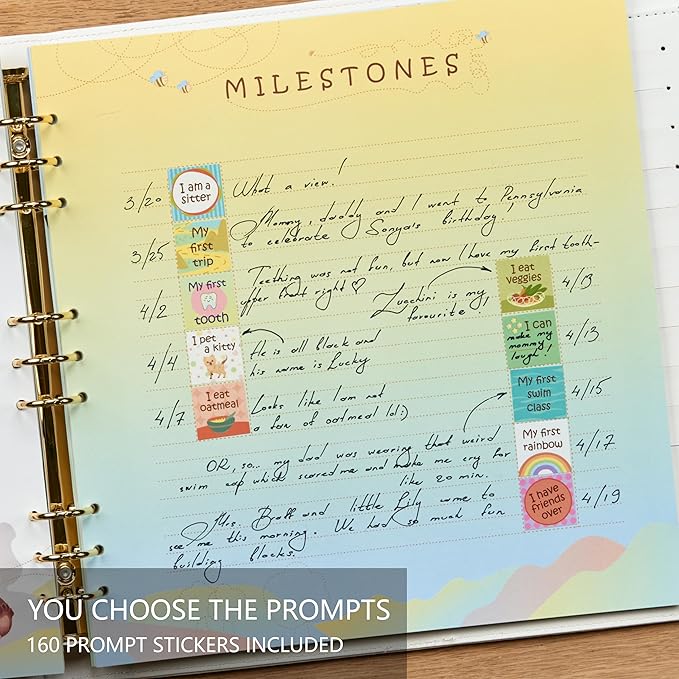 MILESTONES
3/20 I am a sitter What a view!
3/25 My first trip Mommy, daddy and I went to Pennsylvania
to celebrate Sonya's birthday!
4/2 My first tooth Teething was not fun, but now I have my first tooth-
upper front right ♡
Zucchini is my
favourite!
I eat veggies 4/13
4/4 I pet a kitty He is all black and
his name is Lucky
I can make my mommy laugh! 4/13
4/7 I eat oatmeal Looks like I am not
a fan of oatmeal lol:)
My first swim class 4/15
OR, so... my dad was wearing that weird
swim cap which scared me and make me cry for
like 20 min.
My first rainbow 4/17
Mrs. and little Lily came to
see me this morning. We had so much fun
building blocks.
I have friends over 4/19
YOU CHOOSE THE PROMPTS
160 PROMPT STICKERS INCLUDED